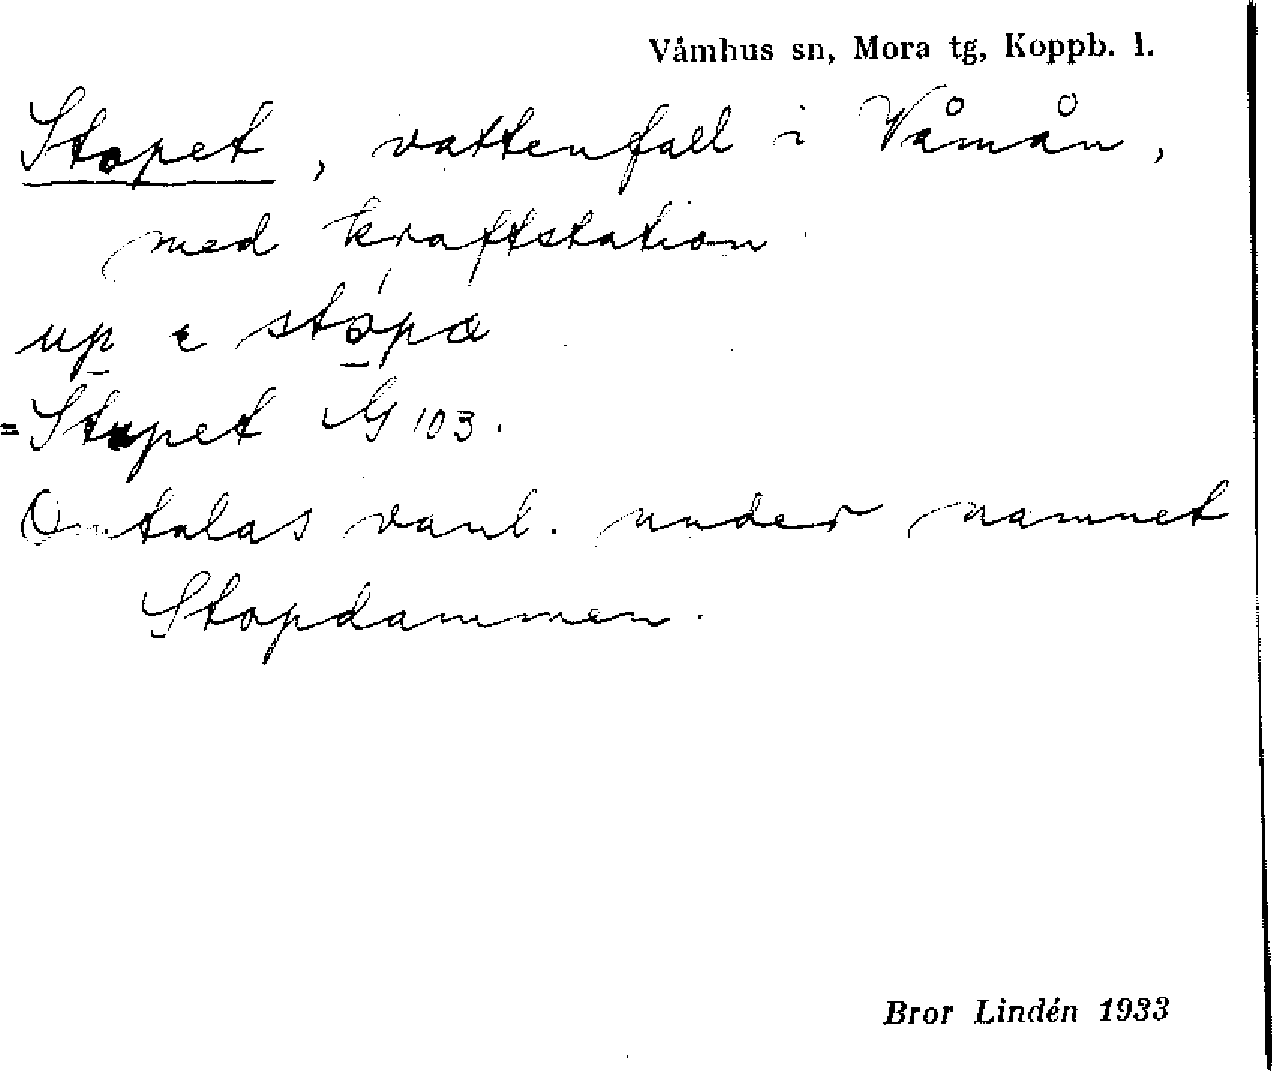 Våmhus sn, Mora tg, Koppb. l.
Stopet, vattenfall i Våmån,
med kraftstation
up stópæ
=Stupet G 103.
Omtalas vanl. under namnet
Stopdammen.
Bror Lindén 1933